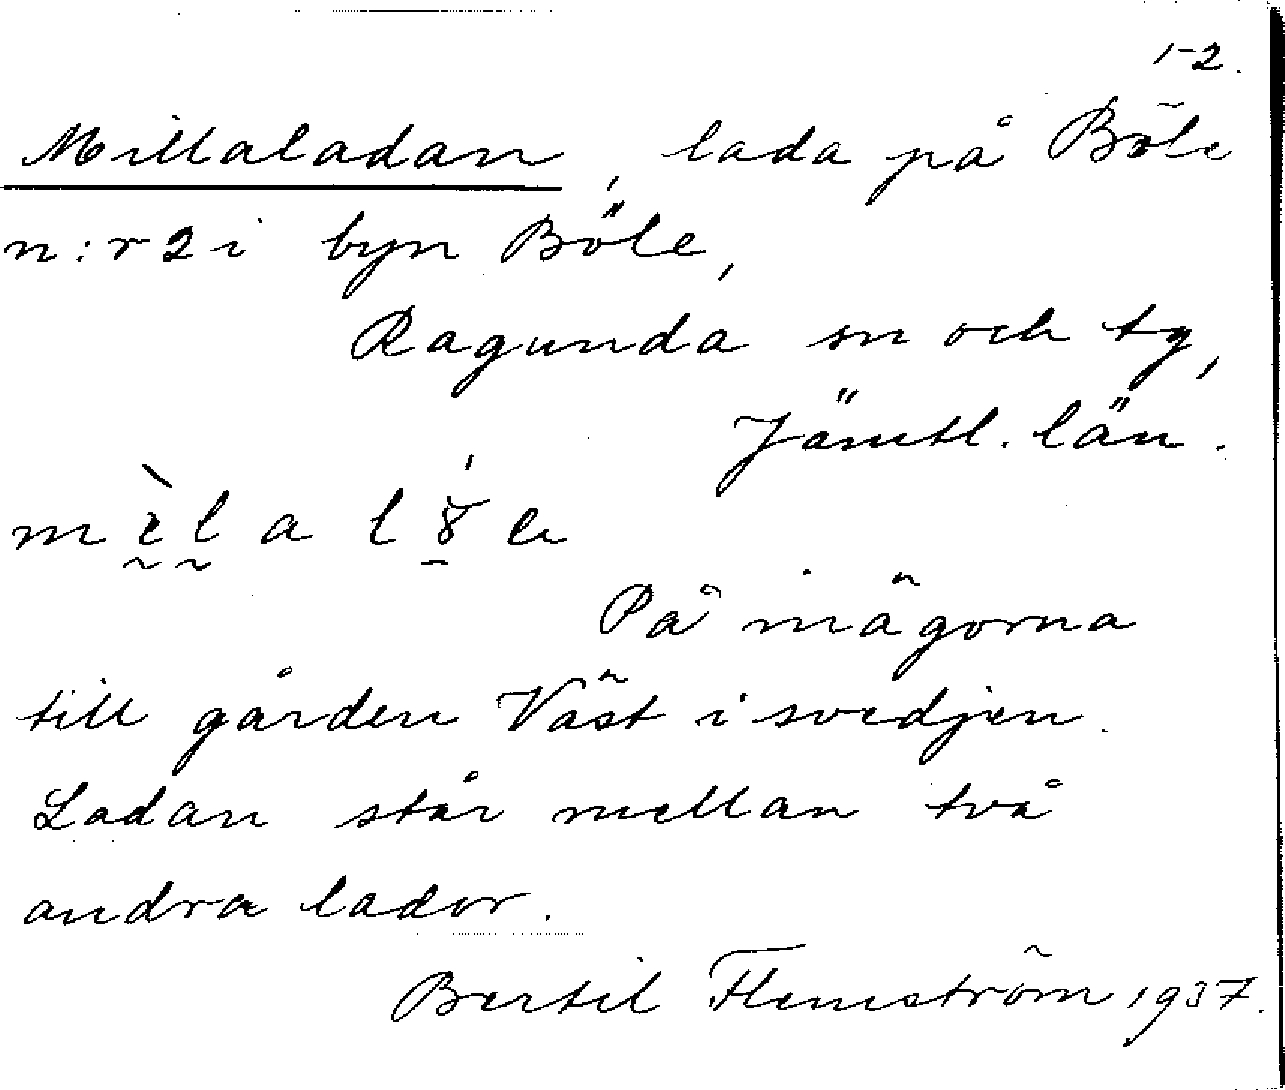 1-2.
Millaladan, lada på Böle
n:r 2 i byn Böle,
Ragunda sn och tg,
Jämtl. län.
På inägorna
till gården Väst i svedjen.
Ladan står mellan två
andra lador.
Bertil Flemström 1937.